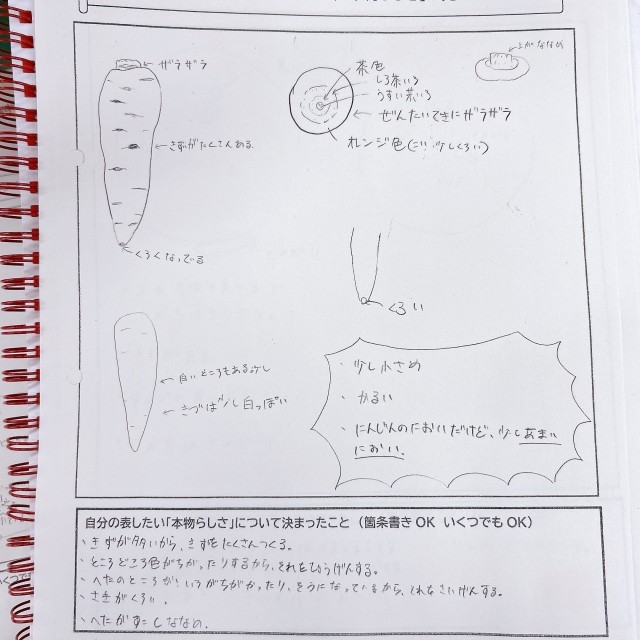 ザラザラ
きずがたくさんある
くろくなってる
茶色
しろ茶いろ
うすい茶いろ
ぜんたいてきにザラザラ
オレンジ色(こい 少しくろい)
上がななめ
くろい
白いところもある少し
きづは少し白っぽい
・少し小さめ
・かるい
・にんじんのにおいだけど、少しあまい
におい.
自分の表したい「本物らしさ」について決まったこと(箇条書きOK いくつでもOK)
・きずが多いから、きずをたくさんつくる。
・ところどころ色がちがったりするから、それをひょうげんする。
・へたのところが、いろがちがかったり、そうになっているから、それをさいげんする。
・さきがくろい.
・へたがすこしななめ.